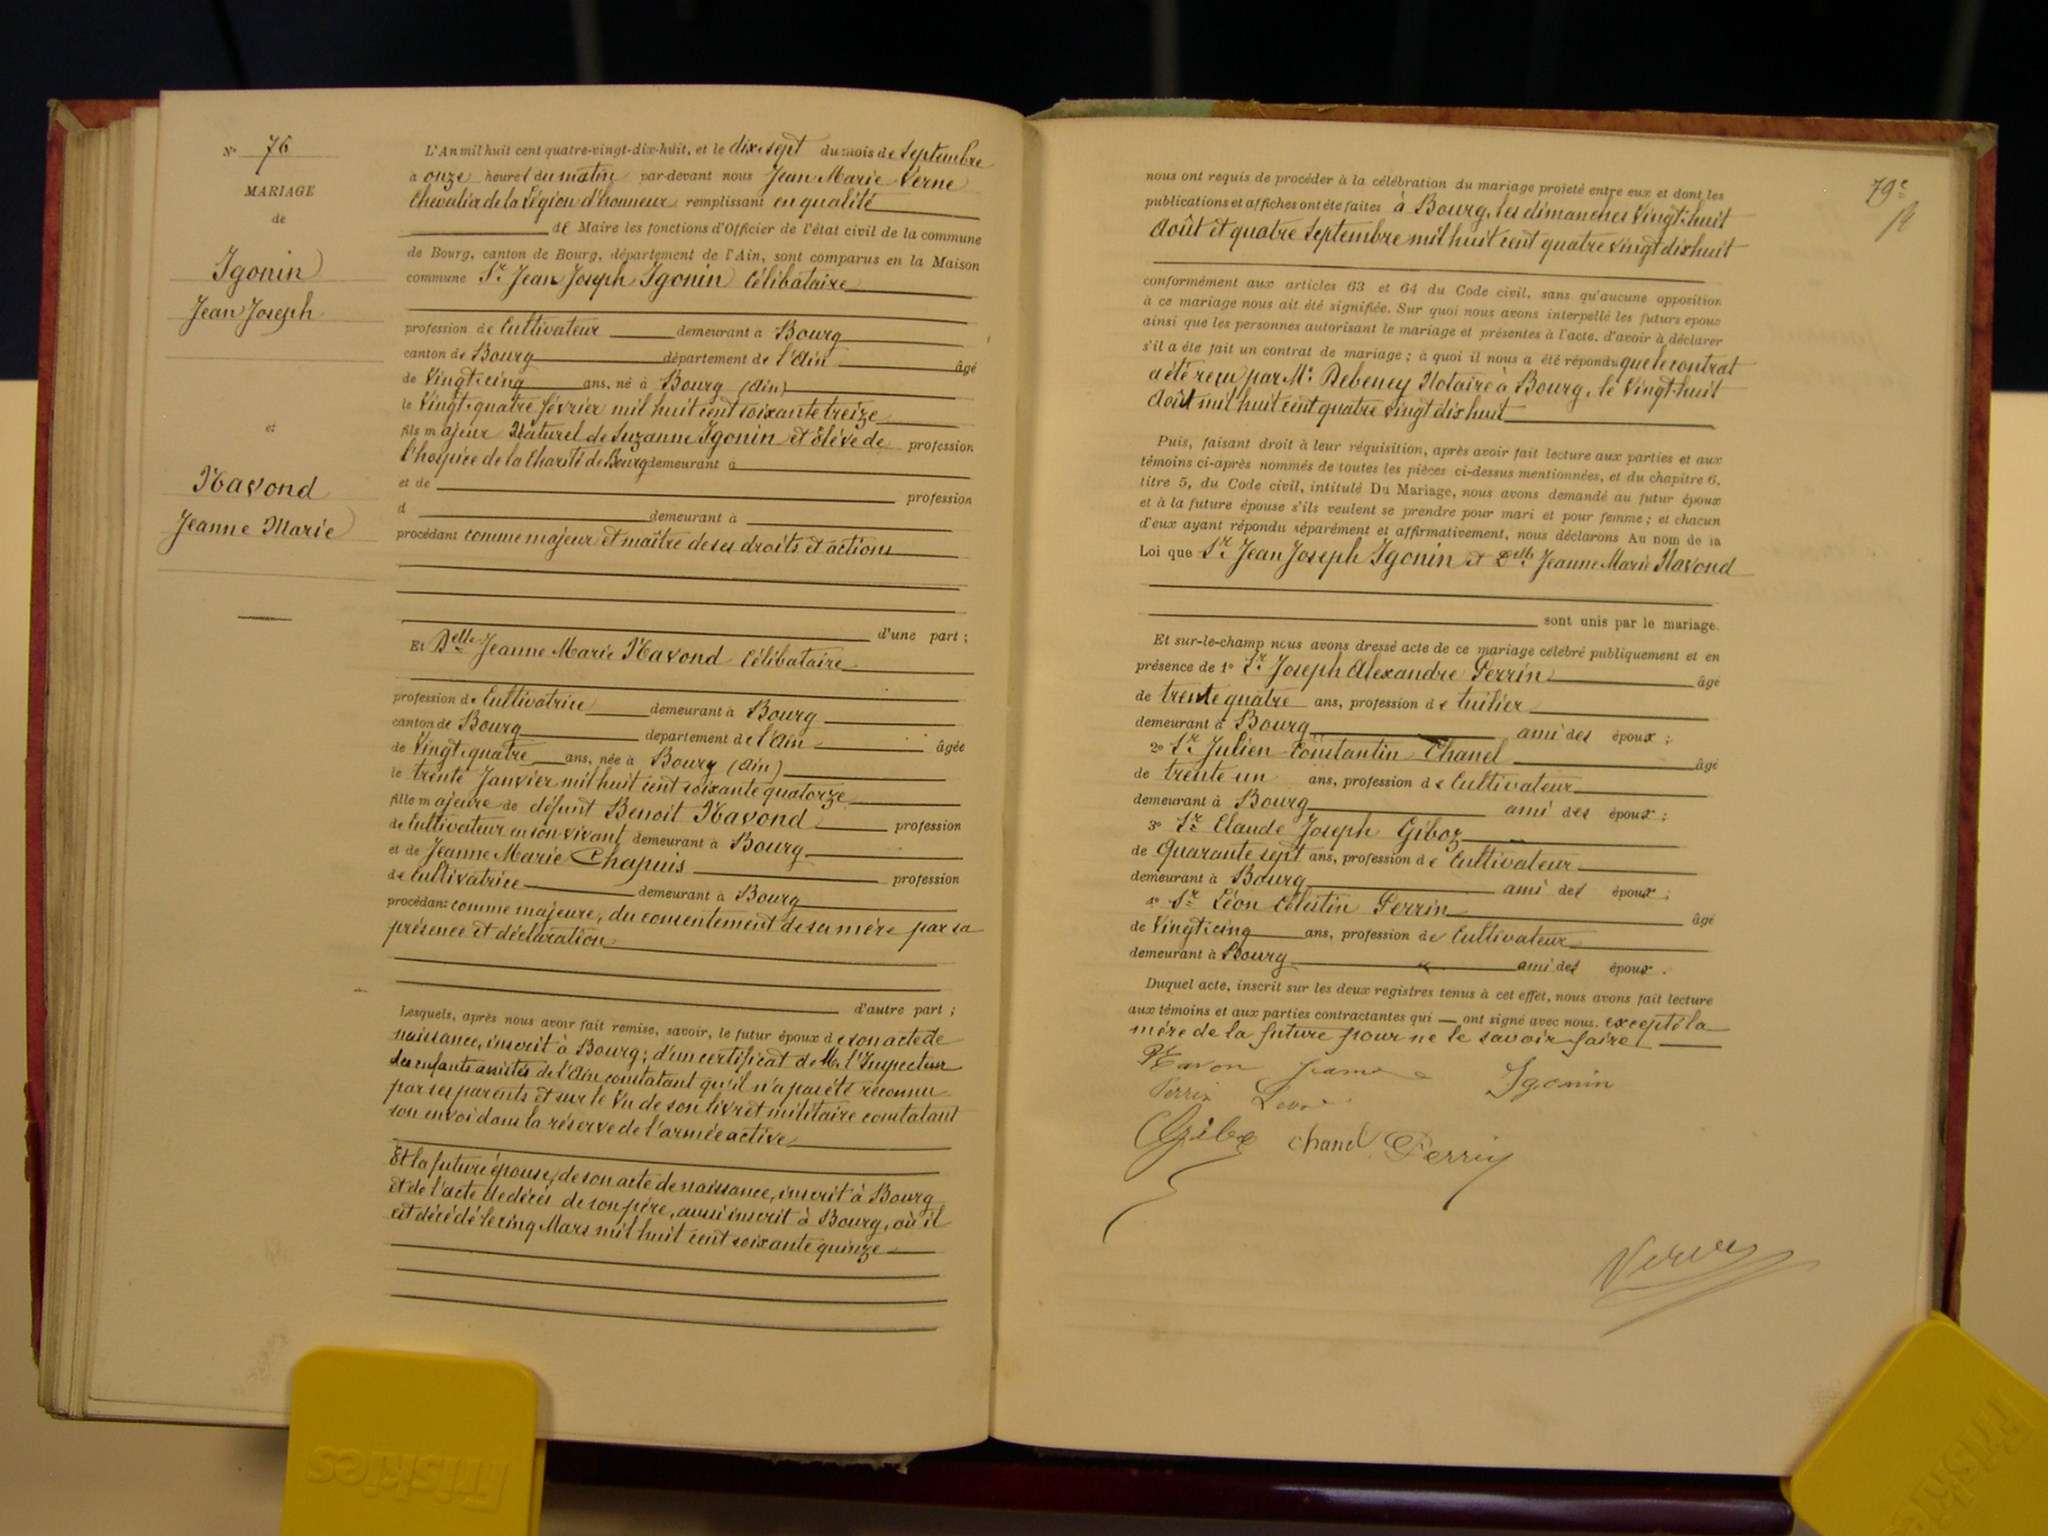 Nº 76
MARIAGE
de
Igonin
Jean Joseph
et
Navond
Jeanne Marie
L'An mil huit cent quatre-vingt-dix-huit, et le dix sept du mois de Septembre
à onze heures du matin par-devant nous Jean Marie Verne
Chevalier de la Légion d'honneur remplissant en qualité
de Maire les fonctions d'Officier de l'état civil de la commune
de Bourg, canton de Bourg, département de l'Ain, sont comparus en la Maison
commune Sr Jean Joseph Igonin Célibataire
profession de Cultivateur demeurant à Bourg
canton de Bourg département de l'Ain âgé
de Vingt cinq ans, né à Bourg (Ain)
le Vingt quatre février mil huit cent soixante treize
fils majeur Naturel de Suzanne Igonin et Elève de profession
l'hospice de la Charité de Bourg demeurant à
et de profession
d demeurant à
procédant comme majeur et maître de ses droits et actions
d'une part ;
Et Delle Jeanne Marie Navond Célibataire
profession de Cultivatrice demeurant à Bourg
canton de Bourg département de l'Ain âgée
de Vingt quatre ans, née à Bourg (Ain)
le trente Janvier mil huit cent soixante quatorze
fille majeure de défunt Benoit Navond profession
de Cultivateur en son vivant demeurant à Bourg
et de Jeanne Marie Chapuis profession
de Cultivatrice demeurant à Bourg
procédant comme majeure, du consentement de sa mère par sa
présence et déclaration
d'autre part ;
Lesquels, après nous avoir fait remise, savoir, le futur époux de son acte de
naissance, inscrit à Bourg ; d'un certificat de Mr l'Inspecteur
des enfants assistés de l'Ain constatant qu'il n'a pas été reconnu
par ses parents et sur le vu de son livret militaire constatant
son envoi dans la réserve de l'armée active
Et la future épouse, de son acte de naissance, inscrit à Bourg
et de l'acte de décès de son père, aussi inscrit à Bourg, où il
est décédé le cinq Mars mil huit cent soixante quinze
79e
nous ont requis de procéder à la célébration du mariage projeté entre eux et dont les
publications et affiches ont été faites à Bourg, les dimanches Vingt huit
Août et quatre Septembre mil huit cent quatre vingt dix huit
conformément aux articles 63 et 64 du Code civil, sans qu'aucune opposition
à ce mariage nous ait été signifiée. Sur quoi nous avons interpellé les futurs époux
ainsi que les personnes autorisant le mariage et présentes à l'acte, d'avoir à déclarer
s'il a été fait un contrat de mariage ; à quoi il nous a été répondu que le contrat
a été reçu par Me Debeney Notaire à Bourg, le Vingt huit
Août mil huit cent quatre vingt dix huit
Puis, faisant droit à leur réquisition, après avoir fait lecture aux parties et aux
témoins ci-après nommés de toutes les pièces ci-dessus mentionnées, et du chapitre 6,
titre 5, du Code civil, intitulé Du Mariage, nous avons demandé au futur époux
et à la future épouse s'ils veulent se prendre pour mari et pour femme ; et chacun
d'eux ayant répondu séparément et affirmativement, nous déclarons Au nom de la
Loi que Sr Jean Joseph Igonin et Delle Jeanne Marie Navond
sont unis par le mariage.
Et sur-le-champ nous avons dressé acte de ce mariage célébré publiquement et en
présence de 1º Sr Joseph Alexandre Perrin âgé
de trente quatre ans, profession de tuilier
demeurant à Bourg ami des époux ;
2º Sr Julien Constantin Chanel âgé
de trente un ans, profession de Cultivateur
demeurant à Bourg ami des époux ;
3º Sr Claude Joseph Giboz
de Quarante sept ans, profession de Cultivateur
demeurant à Bourg ami des époux ;
4º Sr Léon Célestin Perrin âgé
de Vingt cinq ans, profession de Cultivateur
demeurant à Bourg ami des époux .
Duquel acte, inscrit sur les deux registres tenus à cet effet, nous avons fait lecture
aux témoins et aux parties contractantes qui ont signé avec nous, excepté la
mère de la future pour ne le savoir faire.
Navon Jeanne Igonin
Perrin Léon
Giboz chanel Perrin
Verne
Friskies
Friskies